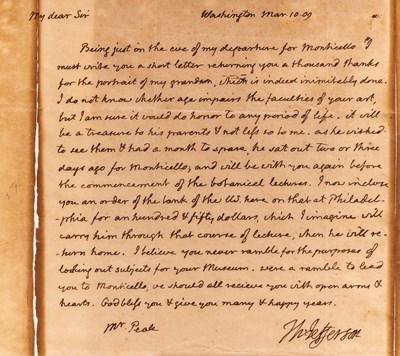 My dear Sir Washington Mar. 10. 09
Being just on the eve of my departure for Monticello I
must write you a short letter returning you a thousand thanks
for the portrait of my grandson, which is indeed inimitably done.
I do not know whether age impairs the faculties of your art,
but I am sure it would do honor to any period of life. it will
be a treasure to his parents & not less so to me. as he wished
to see them & had a month to spare, he sat out two or three
days ago for Monticello, and will be with you again before
the commencement of the botanical lectures. I now inclose
you an order of the bank of the US. here on that at Philadel-
phia for an hundred & fifty, dollars, which I imagine will
carry him through that course of lecture, when he will re-
turn home. I believe you never ramble for the purposes of
looking out subjects for your Museum. were a ramble to lead
you to Monticello, we should all recieve you with open arms &
hearts. God bless you & give you many & happy years.
Mr. Peale Th: Jefferson